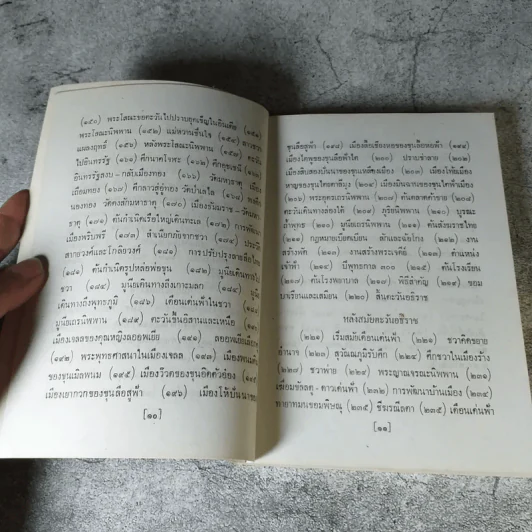 (๑๕๐) พระโสณะขอตะวันไปปราบยุคเข็ญในอินเดีย (๑๕๑)
พระโสณะนิพพาน (๑๕๒) แม่หวานชื่นใจ (๑๕๔)
แผลงฤทธิ์ (๑๕๖) หลังพระโสณะนิพพาน (๑๕๙) ตะวัน
ไปอินทรรัฐ (๑๖๐) ศึกนาคโจฬะ (๑๖๒) ศึกอุชเชนี (๑๖๕)
อินทรรัฐสงบ - กลับเมืองทอง (๑๖๖) วัดมหาธาตุ
เถือนทอง (๑๖๘) ศึกลาวสู่อู่ทอง วัดป่าเลไล (๑๗๐)
นองทอง วัดดงสักมหาธาตุ (๑๗๖) เมืองธรรมราช - วัด
ธาตุ (๑๗๘) ต้นกำเนิดเรือใหญ่เดินทะเล (๑๗๗) การ
เมืองพริบพรี (๑๗๓) สำเนียกภัยจากชวา (๑๗๔)
ศาสตร์และโกลิวงศ์ (๑๘๑) การปรับปรุงลายสือไทย
(๑๘๑) ต้นกำเนิดรูปหล่อพ่อขุน (๑๘๒) มูนีย
(๑๘๔) มูนียเดินทางถึงเกาะมะลก (๑๘๕)
เดินทางถึงพุทธภูมิ (๑๘๖) เดือนเด่นฟ้าในชวา
มูนียเถรนิพพาน (๑๘๙) ตะวันขึ้นอีสานและเหนือ
เลงของคุณหญิงลออพเยีย (๑๙๑) ลออพเยีย
(๑๙๒) พระพุทธศาสนาในเมืองเจลส (๑๙๓) เมือง
ของขุนเมิลพนม (๑๙๕) เมืองวีวดของขุนอิดคัวย่อง
เมืองเยากวกของขุนลือสู่ฟ้า (๑๙๖) เมืองไห้
[๑๐]
ขุนลือสู่ฟ้า (๑๙๘) เมืองสิบเชียงหอยของขุนลือหอยฟ้า (๑๙๙)
เมืองไตพูของขุนลือฟ้าไต (๒๐๐) ปราบข่าลาย (๒๐๒)
เมืองสิบสองปันนาของขุนแหล่งเมือง (๒๐๓) เมืองไห้ฉิม
หาญของขุนไตรคำธีมุง (๒๐๔) เมืองมีนฉานของขุนใตฟ้าเมือง
(๒๐๕) พระอุตรเถรนิพพาน (๒๐๗) ต้นตลาดค้าขาย (๒๐๘)
ตะวันเดินทางล่องใต้ (๒๐๙) ภูริยะนิพพาน (๒๑๐) บูรณะ
ถ้ำพุทธ (๒๑๐) มูนียเถรนิพพาน (๒๑๐) ต้นสังฆราชไทย
(๒๑๑) กฎหมายเบียดเบียน ลักและฉ้อโกง (๒๑๒) งาน
สร้างพัด (๒๑๓) งานสร้างพระเจดีย์ (๒๑๓) ตำแหน่ง
เจ้าฟ้า (๒๑๔) ปีพุทธกาล ๓๐๐ (๒๑๕) ต้นโรงเรียน
(๒๑๗) ต้นโรงพยาบาล (๒๑๗) พิธีสำคัญ (๒๑๙) ขอม
มาเรียนและเสมียน (๒๒๐) สิ้นตะวันอธิราช
หลังสมัยตะวันอธิราช
(๒๒๑) เริ่มสมัยเดือนเด่นฟ้า (๒๒๑) ชวาคิดขยาย
อำนาจ (๒๒๐) สุวัณณภูมิรับศึก (๒๒๔) ศึกชวาในเมืองร้าง
(๒๒๗) ชวาพ่าย (๒๒๙) พระญาณจรณะนิพพาน (๒๓๑)
เชื่อมชลัสดุ - ดาวเด่นฟ้า (๒๓๒) การพัฒนาบ้านเมือง (๒๓๔)
ทายาทมนขอมพิษณุ (๒๓๕) ชีรวณีลดา (๒๓๕) เดือนเด่นฟ้า
[๑๑]